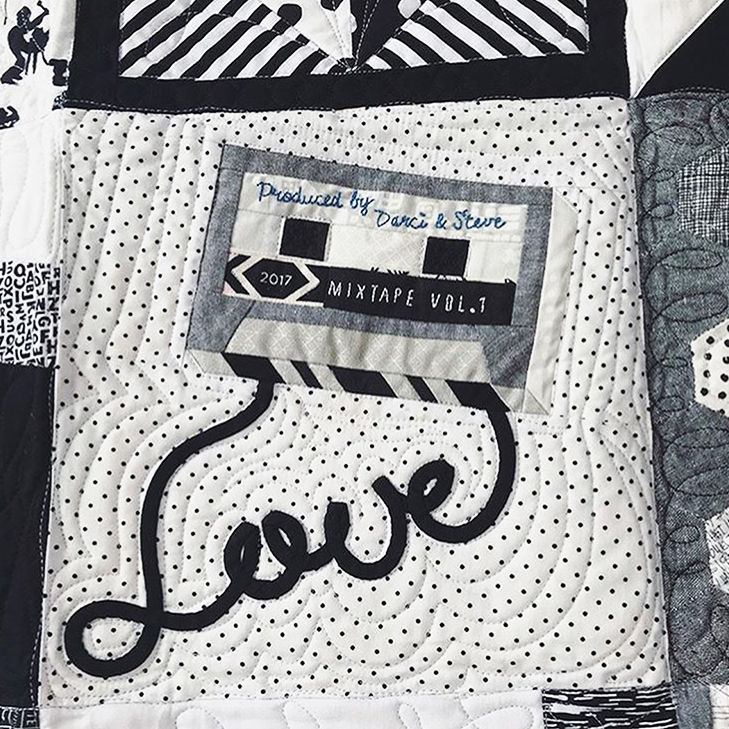 Produced by
Darci & Steve
2017
MIXTAPE VOL.1
Love